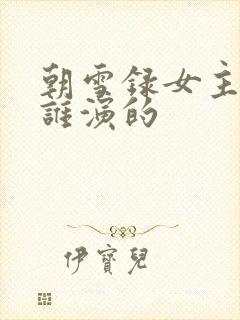 朝雪録女主
誰演的
伊寶兒